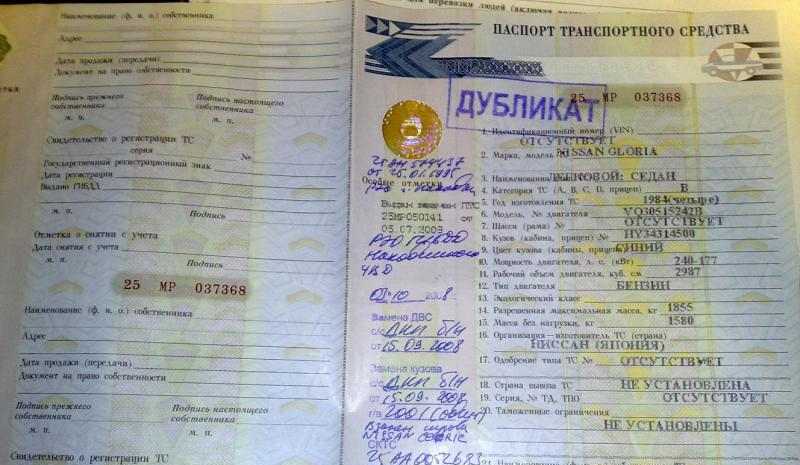 Наименование (ф. и. о.) собственника
Адрес
Дата продажи (передачи)
Документ на право собственности
Подпись прежнего собственника
Подпись настоящего собственника
м. п.
м. п.
Свидетельство о регистрации ТС
серия
№
Государственный регистрационный знак
Дата регистрации
Выдано ГИБДД
м. п.
Подпись
Отметка о снятии с учета
Дата снятия с учета
м. п.
Подпись
25 МР 037368
Наименование (ф. и. о.) собственника
Адрес
Дата продажи (передачи)
Документ на право собственности
Подпись прежнего собственника
Подпись настоящего собственника
м. п.
м. п.
Свидетельство о регистрации ТС
ПАСПОРТ ТРАНСПОРТНОГО СРЕДСТВА
ДУБЛИКАТ
25 МР 037368
1. Идентификационный номер (VIN)
ОТСУТСТВУЕТ
2. Марка, модель NISSAN GLORIA
3. Наименование ЛЕГКОВОЙ: СЕДАН
4. Категория ТС (А, В, С, D, прицеп) В
5. Год изготовления ТС 1984(четыре)
6. Модель, № двигателя VQ30515242B
7. Шасси (рама) № ОТСУТСТВУЕТ
8. Кузов (кабина, прицеп) № HY34314500
9. Цвет кузова (кабины, прицепа) СИНИЙ
10. Мощность двигателя, л. с. (кВт) 240-177
11. Рабочий объем двигателя, куб. см 2987
12. Тип двигателя БЕНЗИН
13. Экологический класс
14. Разрешенная максимальная масса, кг 1855
15. Масса без нагрузки, кг 1580
16. Организация-изготовитель ТС (страна)
НИССАН (ЯПОНИЯ)
17. Одобрение типа ТС № ОТСУТСТВУЕТ
18. Страна вывоза ТС НЕ УСТАНОВЛЕНА
19. Серия, № ТД, ТПО ОТСУТСТВУЕТ
20. Таможенные ограничения
НЕ УСТАНОВЛЕНЫ
Особые отметки
Выдан взамен ПТС
25МР050141
05.07.2009
Замена ДВС
с/с ДКП б/н
от 15.09.2008
Замена кузова
с/с ДКП б/н
от 15.09.2008
NISSAN CEDRIC
СКТС
25 АА 0052683